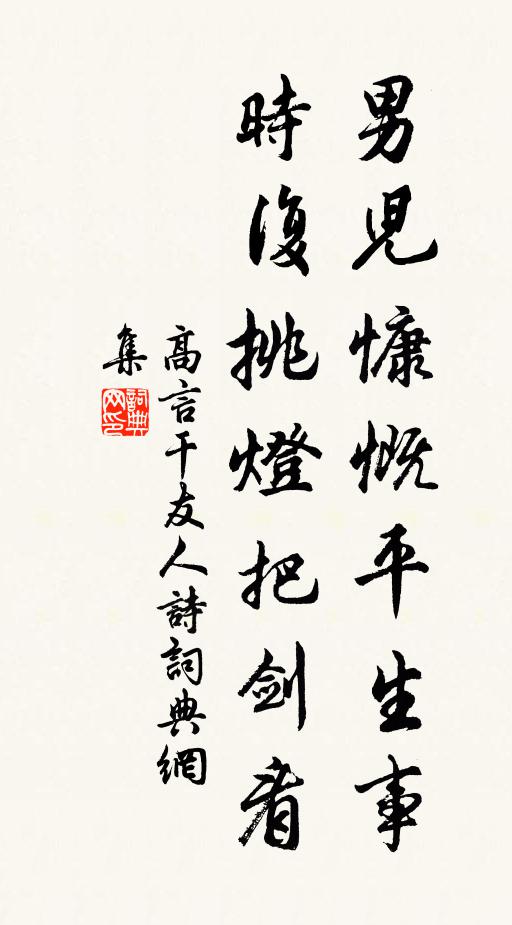 男兒慷慨平生事
時復挑燈把劍看
高言干友人詩詞典網
集
詞典網印